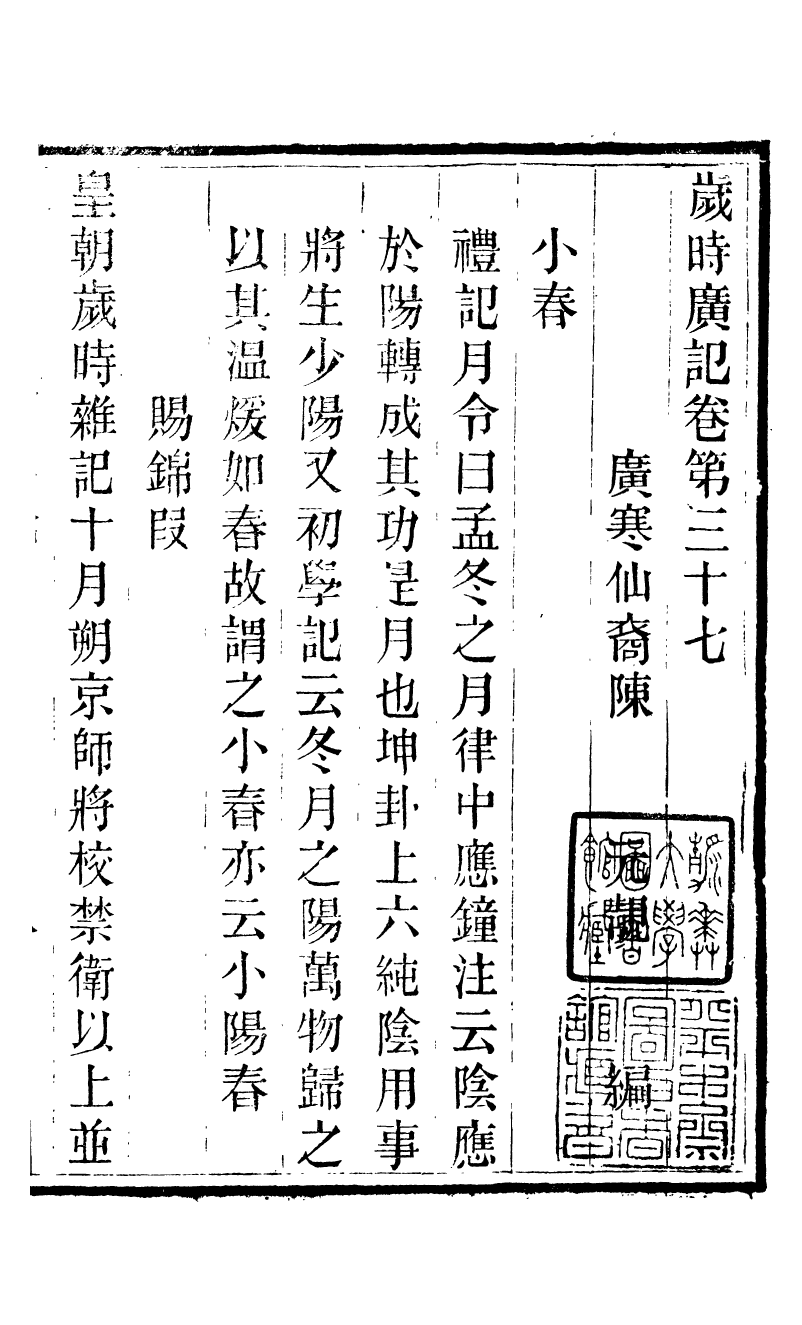 歲時廣記卷第三十七
廣寒仙裔陳元靚編
小春
禮記月令曰孟冬之月律中應鐘注云陰應
於陽轉成其功是月也坤卦上六純陰用事
將生少陽又初學記云冬月之陽萬物歸之
以其温煖如春故謂之小春亦云小陽春
賜錦段
皇朝歲時雜記十月朔京師將校禁衛以上並